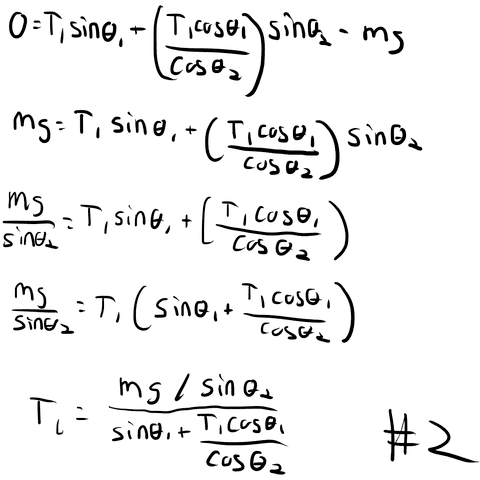 0 = T₁ sinθ₁ + (T₁cosθ₁ / cosθ₂) sinθ₂ - mg
mg = T₁ sinθ₁ + (T₁cosθ₁ / cosθ₂) sinθ₂
mg / sinθ₂ = T₁ sinθ₁ + (T₁cosθ₁ / cosθ₂)
mg / sinθ₂ = T₁ (sinθ₁ + T₁cosθ₁ / cosθ₂)
T₁ = (mg / sinθ₂) / (sinθ₁ + T₁cosθ₁ / cosθ₂)
#2